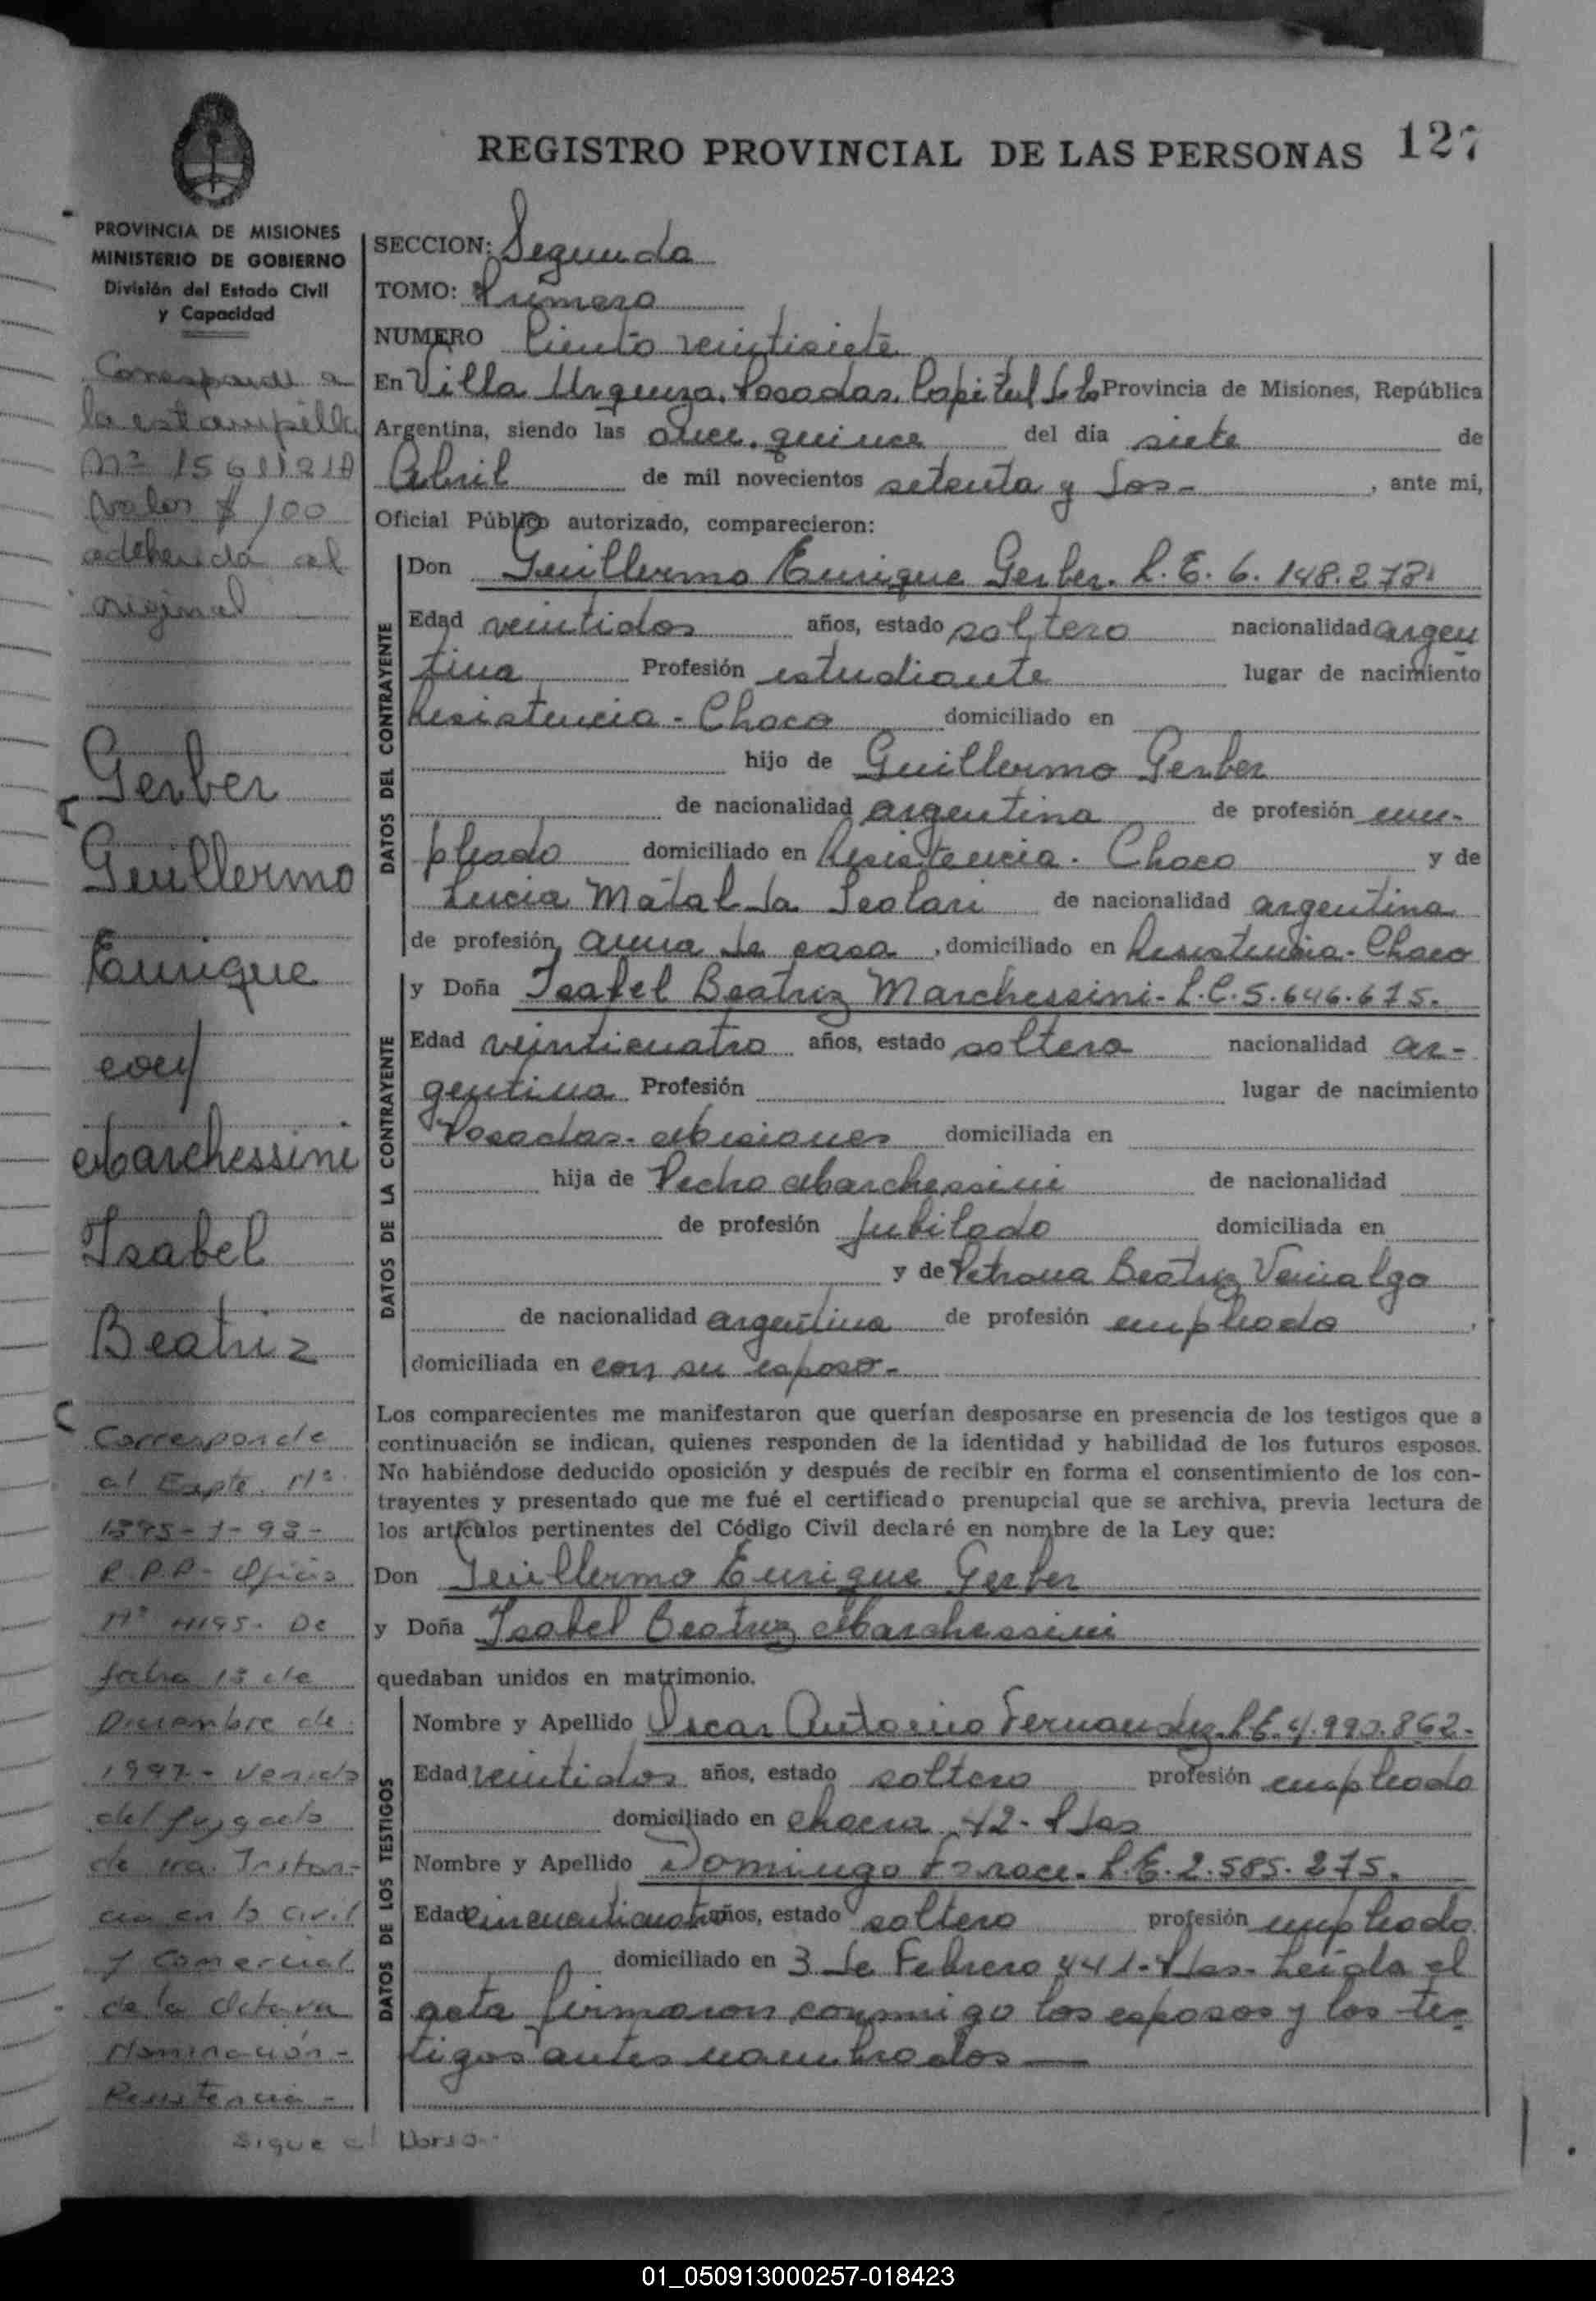 REGISTRO PROVINCIAL DE LAS PERSONAS 127
PROVINCIA DE MISIONES
MINISTERIO DE GOBIERNO
División del Estado Civil
y Capacidad
Corresponde a
la estampilla
Nº 15611210
valor $ 100
adherida al
original
Gerber
Guillermo
Enrique
con
Marchessini
Isabel
Beatriz
Corresponde
al Expte. Nº
1395-1-93-
R.P.P- Oficio
Nº 4195- De
fecha 13 de
Diciembre de
1997- Venido
del Juzgado
de 1ra. Instan-
cia en lo Civil
y Comercial
de la Octava
Nominación-
Resistencia-
Sigue al Dorso-
SECCION: Segunda
TOMO: Primero
NUMERO Ciento veintisiete
En Villa Urquiza, Posadas, Capital de la Provincia de Misiones, República
Argentina, siendo las once, quince del día siete de
Abril de mil novecientos setenta y dos- , ante mi,
Oficial Público autorizado, comparecieron:
DATOS DEL CONTRAYENTE
Don Guillermo Enrique Gerber. L.E. 6.148.278.
Edad veintidos años, estado soltero nacionalidad argen
tina Profesión estudiante lugar de nacimiento
Resistencia - Chaco domiciliado en
hijo de Guillermo Gerber
de nacionalidad argentina de profesión em-
pleado domiciliado en Resistencia. Chaco y de
Lucia Matalda Scolari de nacionalidad argentina
de profesión ama de casa , domiciliado en Resistencia- Chaco
DATOS DE LA CONTRAYENTE
y Doña Isabel Beatriz Marchessini- L.C. 5.646.675.
Edad veinticuatro años, estado soltera nacionalidad ar-
gentina Profesión lugar de nacimiento
Posadas- Misiones domiciliada en
hija de Pedro Marchessini de nacionalidad
de profesión Jubilado domiciliada en
y de Petrona Beatriz Venialgo
de nacionalidad argentina de profesión empleada ,
domiciliada en con su esposo-
Los comparecientes me manifestaron que querían desposarse en presencia de los testigos que a
continuación se indican, quienes responden de la identidad y habilidad de los futuros esposos.
No habiéndose deducido oposición y después de recibir en forma el consentimiento de los con-
trayentes y presentado que me fué el certificado prenupcial que se archiva, previa lectura de
los artículos pertinentes del Código Civil declaré en nombre de la Ley que:
Don Guillermo Enrique Gerber
y Doña Isabel Beatriz Marchessini
quedaban unidos en matrimonio.
DATOS DE LOS TESTIGOS
Nombre y Apellido Oscar Antonio Fernandez- L.E. 4.990.862-
Edad veintidos años, estado soltero profesión empleado
domiciliado en chacra 42- Pdas
Nombre y Apellido Domingo L.E. 2.585.275.
Edad cincuenticuatro años, estado soltero profesión empleado
domiciliado en 3 de Febrero 441- Pdas- Leida el
acta firmaron conmigo los esposos y los tes
tigos antes nombrados—
01_050913000257-018423